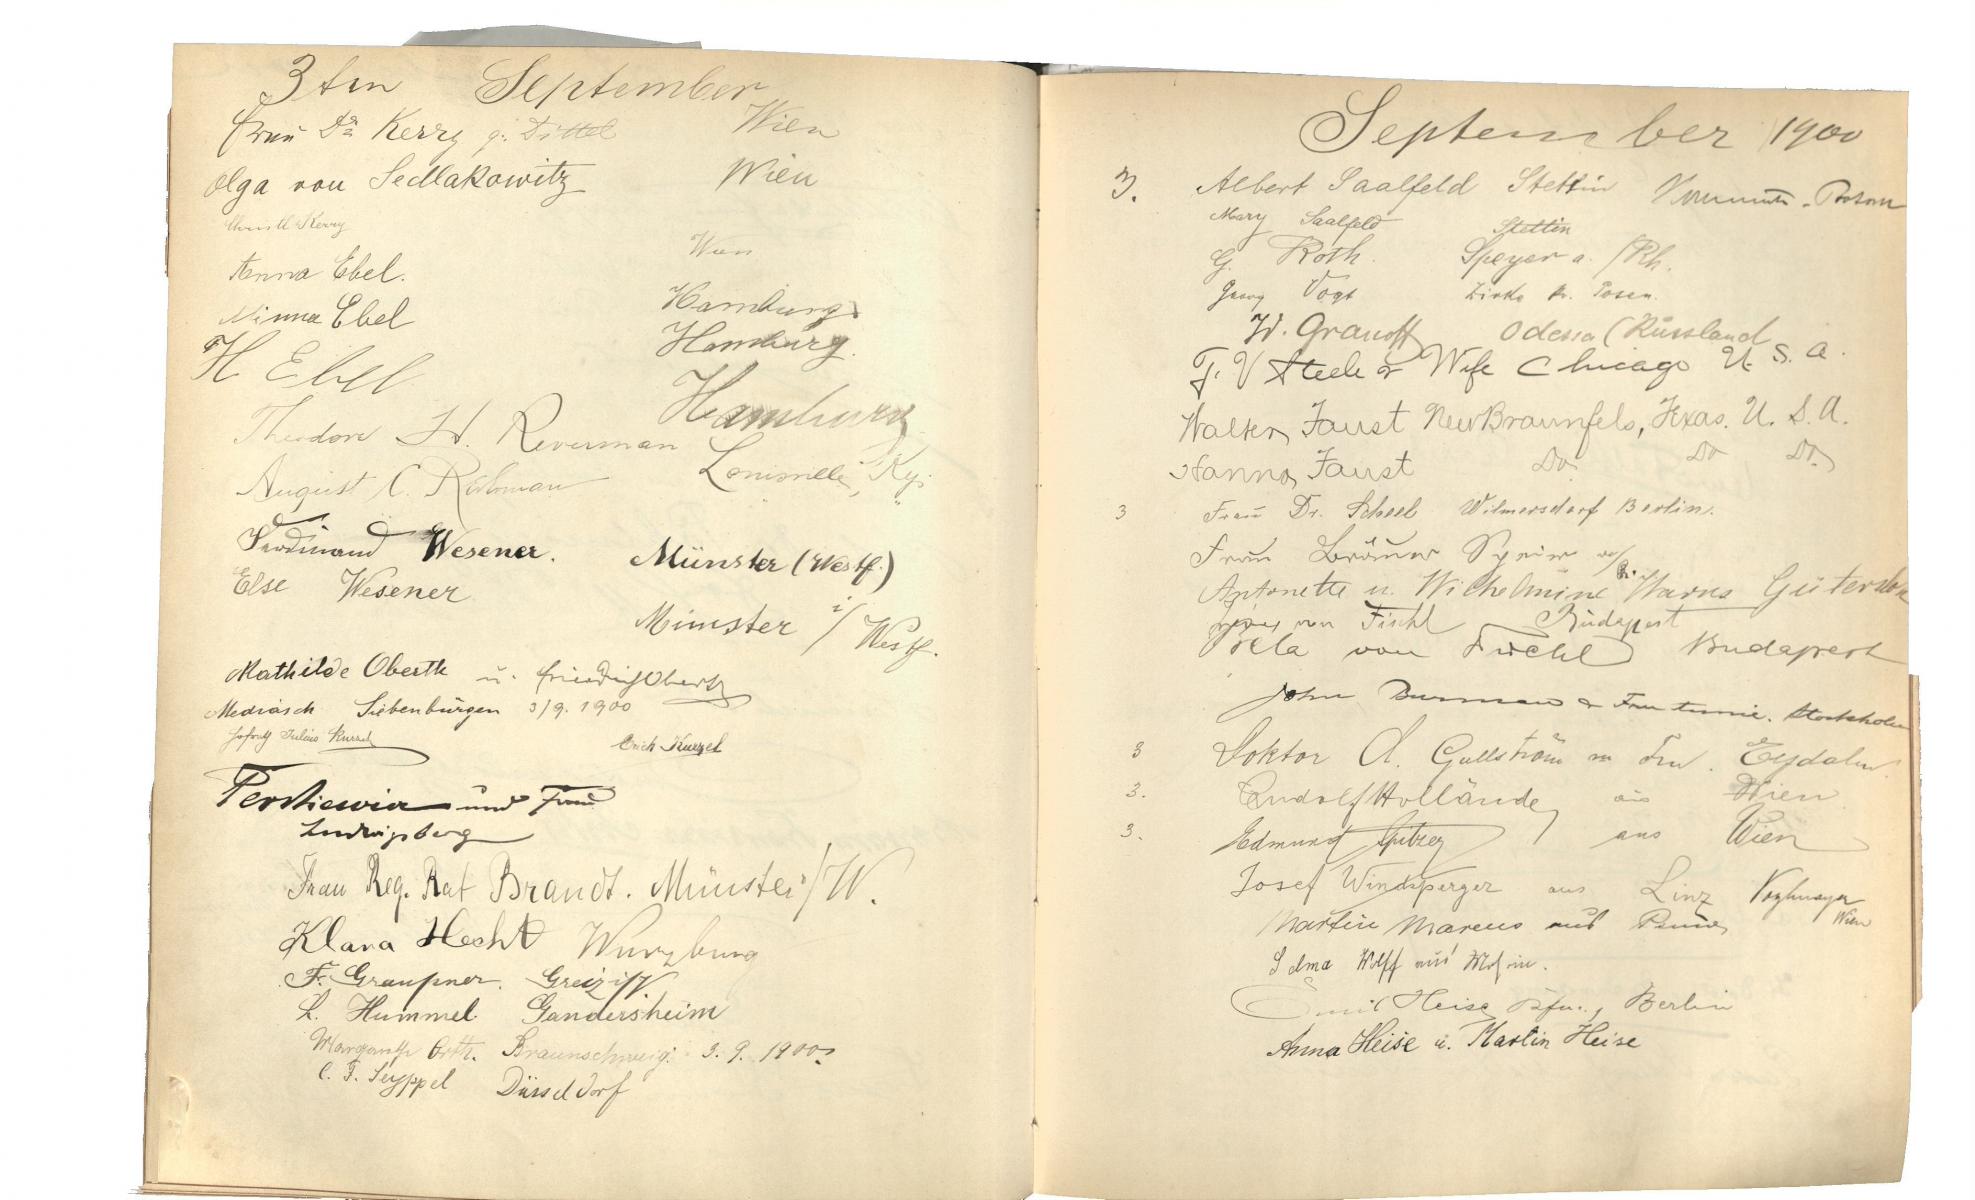 3ten September
Frau Dr Kerry g. Dittel Wien
Olga von Sedlakowitz Wien
Christl Kerry
Anna Ebel. Wien
Minna Ebel Hamburg
H Ebel Hamburg.
Hamburg
Theodore H. Reverman Louisville, Ky.
August C. "
Ferdinand Wesener. Münster (Westf.)
Else Wesener Münster i/Westf.
Mathilde Oberth u. Friedrich Oberth
Mediasch Siebenbürgen 3/9. 1900
Julius Erich Kurzel
und Frau
Ludwigsberg
Frau Reg. Rat Brandt. Münster i/W.
Klara Hecht Würzburg
F. Graupner.
L. Hummel Gandersheim
Margarethe Orth. Braunschweig. 3. 9. 1900.
C. F. Seyppel Düsseldorf
September 1900
3. Albert Saalfeld Stettin
Mary Saalfeld Stettin
G. Roth. Speyer a./Rh.
Georg Vogt Zirke Pr. Posen.
W. Granoff Odessa (Russland
F. V Steele & Wife Chicago U. S. A.
Walter Faust New Braunfels, Texas. U. S. A.
Hanna Faust Do Do Do
3 Frau Dr. Scheel Wilmersdorf Berlin.
Frau
Antonette u. Wilhelmine Gütersloh
von Fischl Budapest
Bela von Fischl Budapest
John Burman & Stockholm
3 Doktor A. Gullström
3. Rudolf Holländer aus Wien
3. Edmund Spitzer aus Wien
Josef Windsperger aus Linz
Wien
Martin Marcus aus
Selma Wolff aus
Emil Heise Berlin
Anna Heise u. Martin Heise